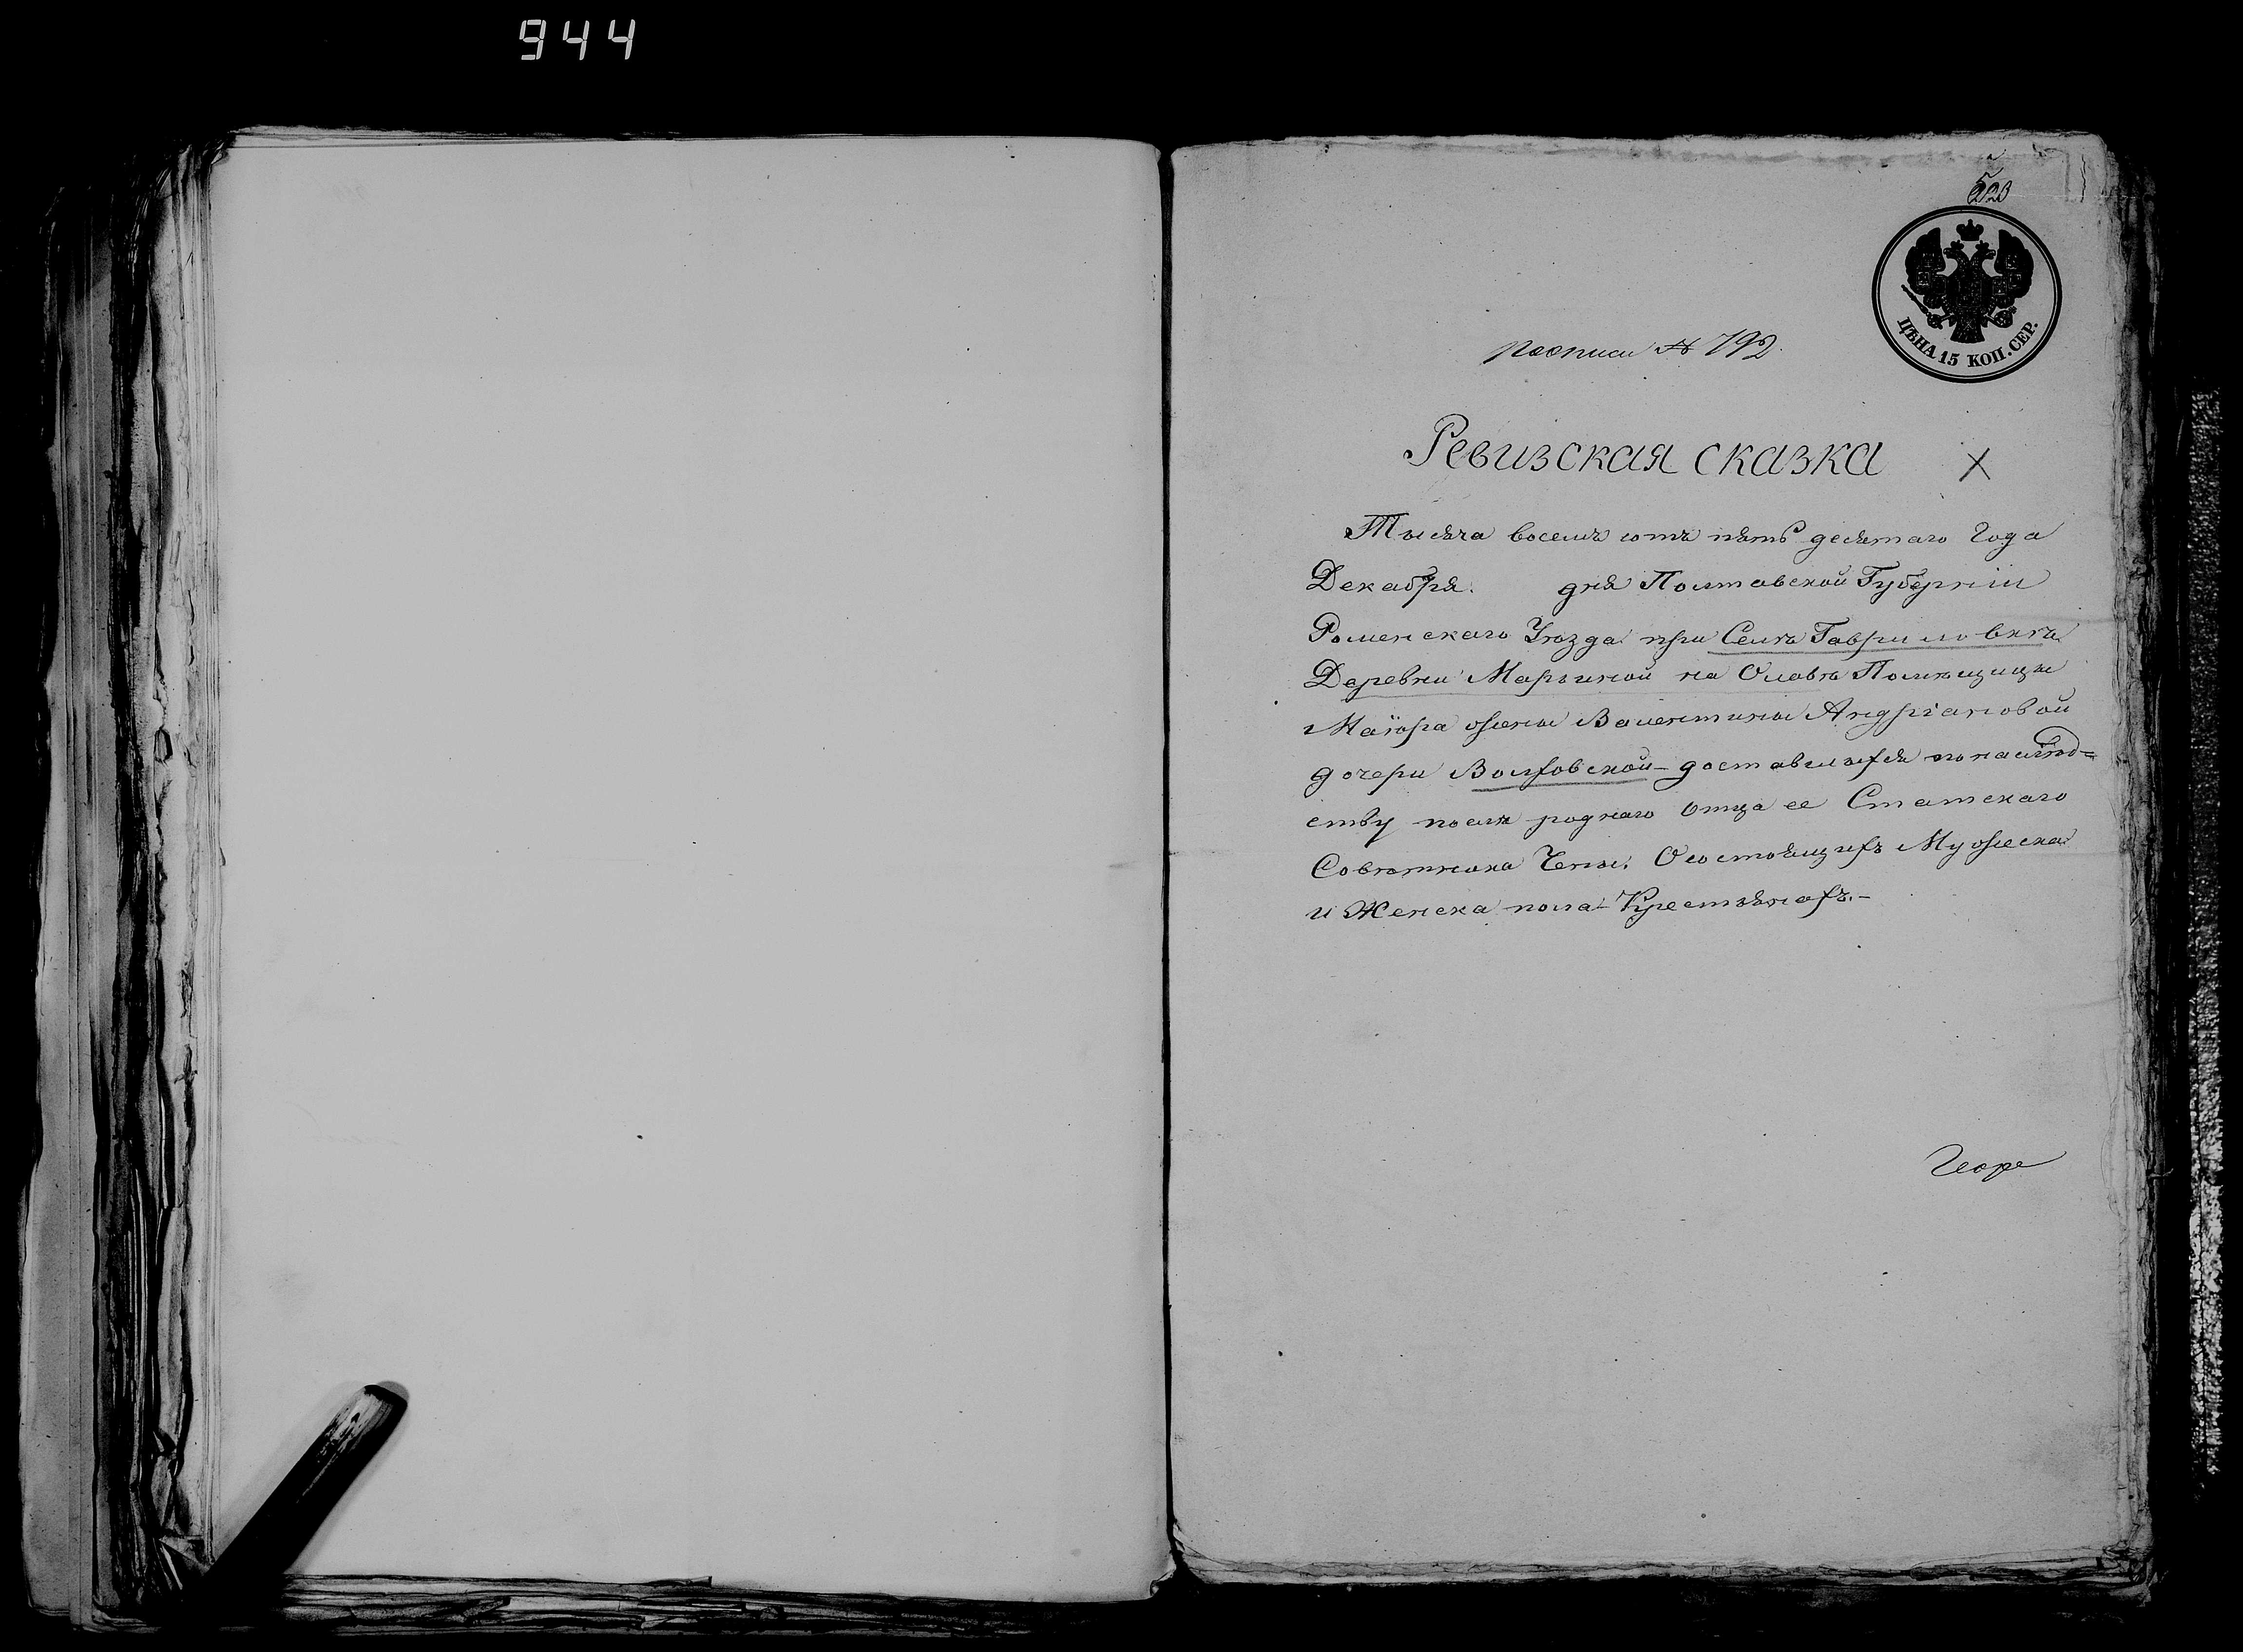 944
росписи № 792.
ЦѢНА 15 КОП. СЕР.
Ревизская сказка
Тысяча восемъ сотъ пять десятаго Года
Декабря. дня Полтавской Губерніи
Роменскаго Уѣзда при Селѣ Гавриловкѣ
Деревни Марьиной на Олавѣ Помѣщицы
Маіора жены Валентины Андріановой
дочери Волховской – доставшихся по наслѣд=
ству послѣ роднаго отца ее Статскаго
Совѣтника О состоящихъ Мужеска
и Женска пола Крестьянахъ.–